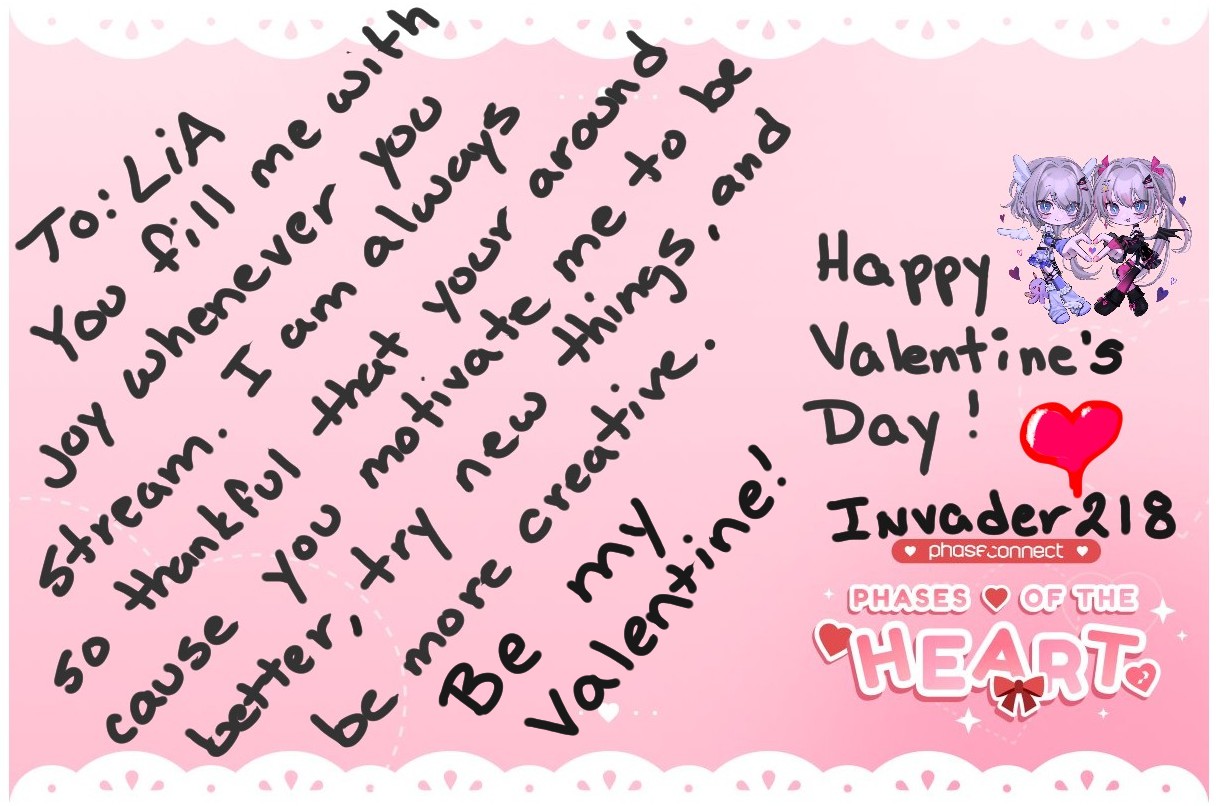 To: LiA
You fill me with
Joy whenever you
stream. I am always
so thankful that your around
cause you motivate me to be
better, try new things, and
be more creative.
Be my
Valentine!
Happy
Valentine's
Day!
Invader218
phase connect
PHASES OF THE
HEART